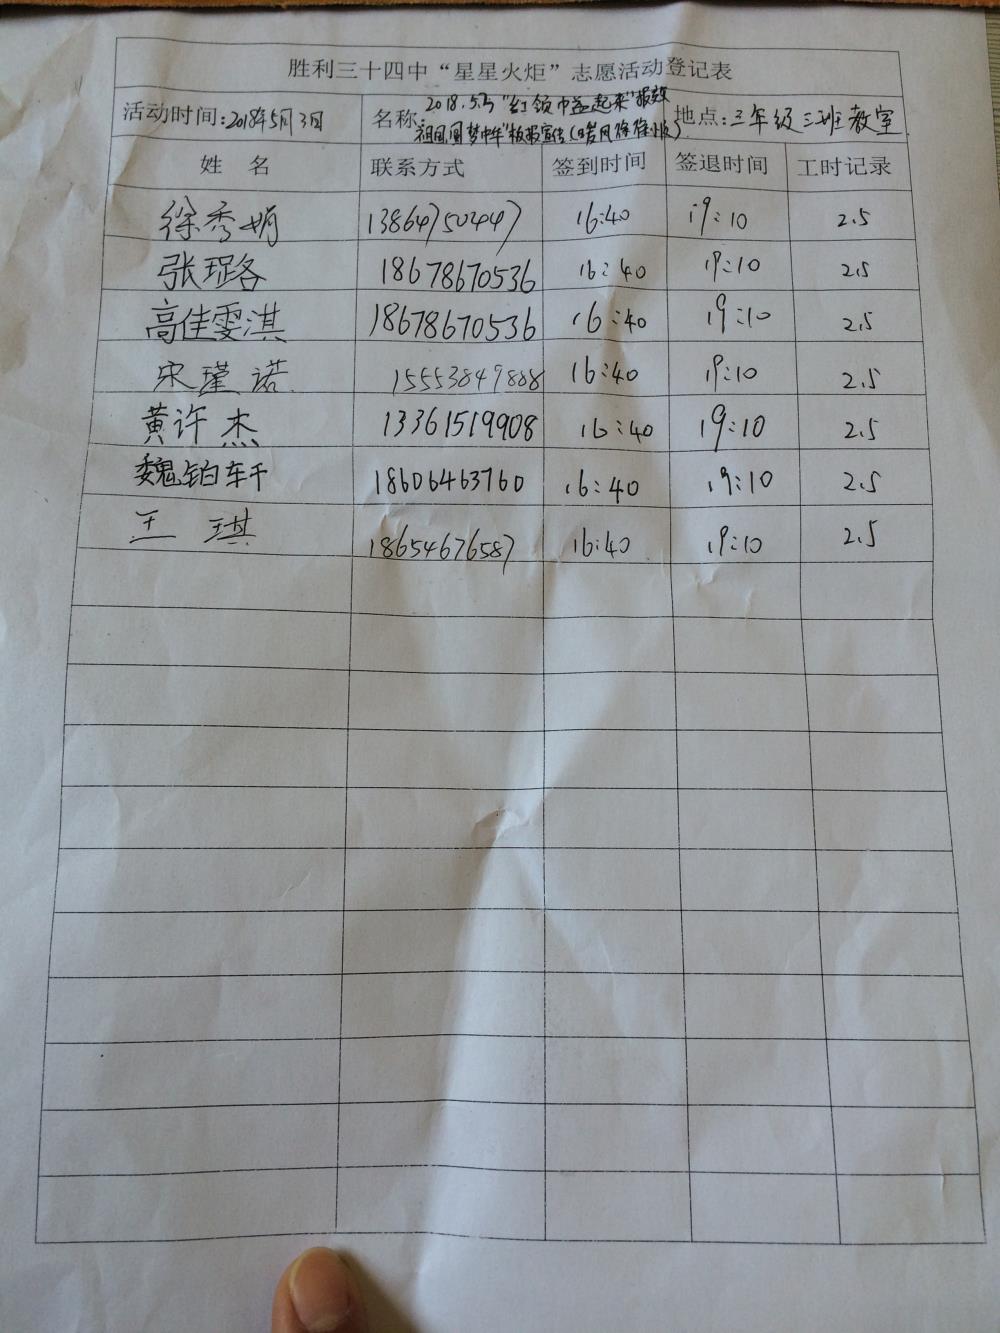 胜利三十四中“星星火炬”志愿活动登记表
活动时间:2018年5月3日 名称:2018.5.3"红领巾益起来"报效 地点:三年级三班教室
祖国圆梦中华"板报宣传(暖风徐徐小队)
姓 名 联系方式 签到时间 签退时间 工时记录
徐秀娟 13864750447 16:40 19:10 2.5
张琀路 18678670536 16:40 19:10 2.5
高佳雯淇 18678670536 16:40 19:10 2.5
宋瑾诺 15553849888 16:40 19:10 2.5
黄许杰 13361519908 16:40 19:10 2.5
魏铂轩 18606463760 16:40 19:10 2.5
王 琪 18654676587 16:40 19:10 2.5